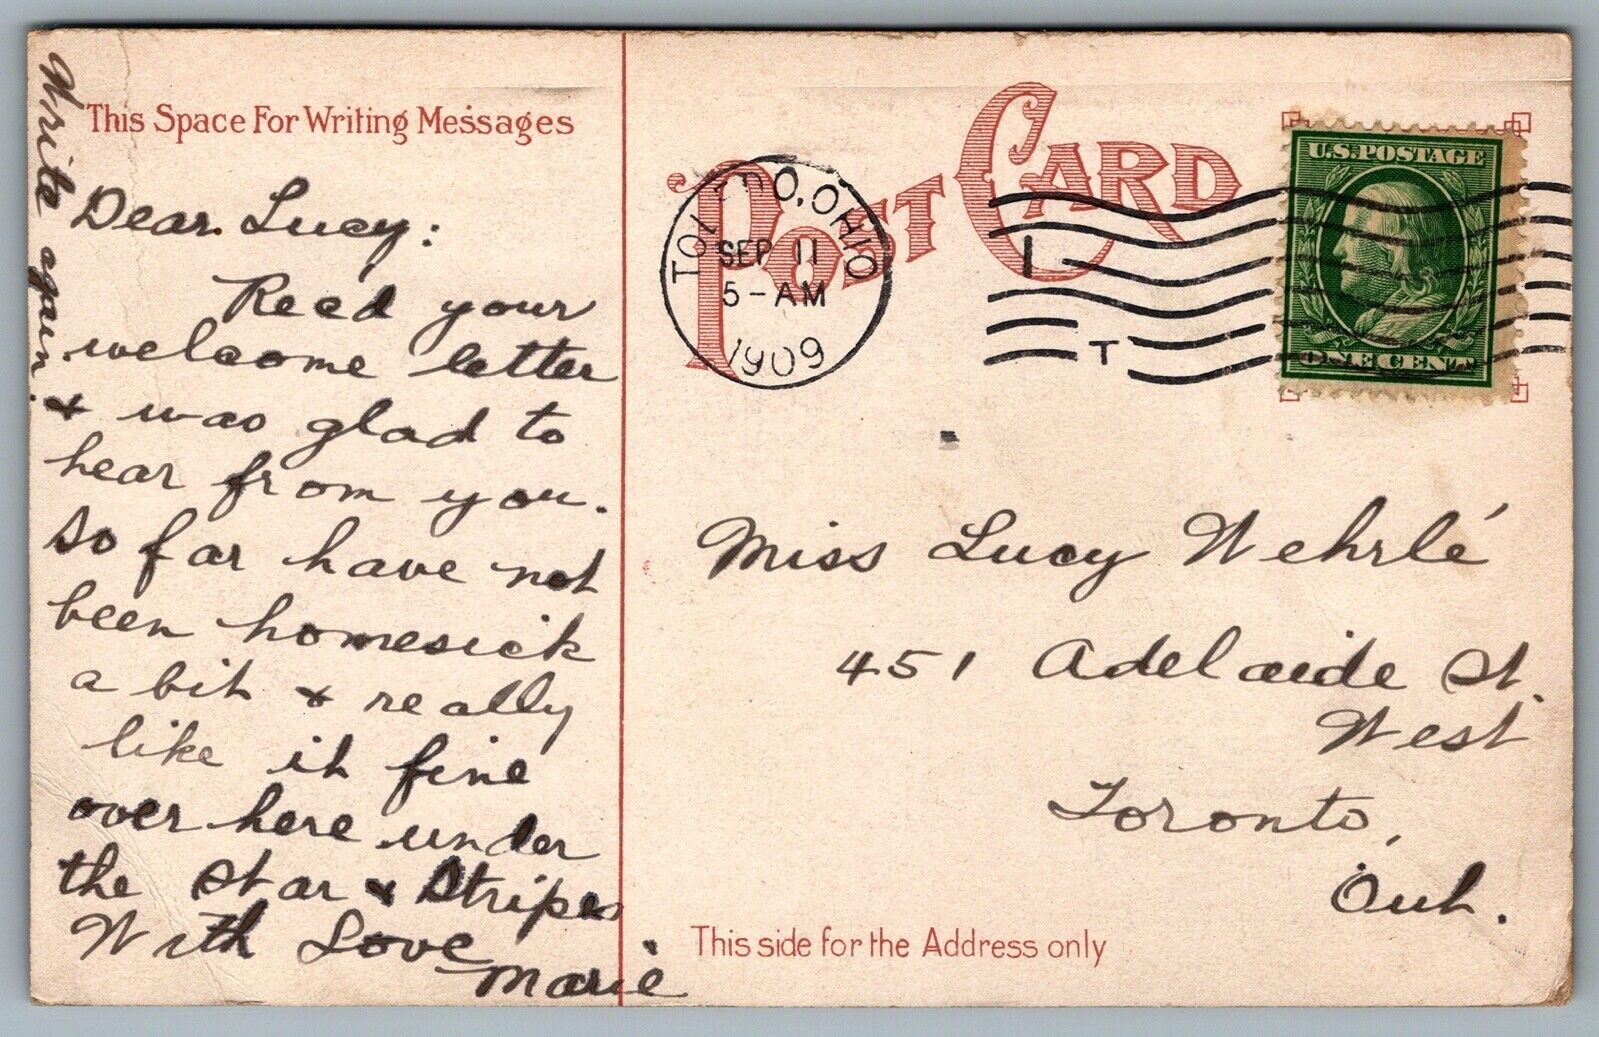 This Space For Writing Messages
Write again.
Dear Lucy:
Recd your
welcome letter
& was glad to
hear from you.
So far have not
been homesick
a bit & really
like it fine
over here under
the Star & Stripes
With Love
Marie
POST CARD
TOLEDO, OHIO
SEP 11
5-AM
1909
1
T
U.S. POSTAGE
ONE CENT
Miss Lucy Wehrlé
451 Adelaide St.
West
Toronto,
Ont.
This side for the Address only